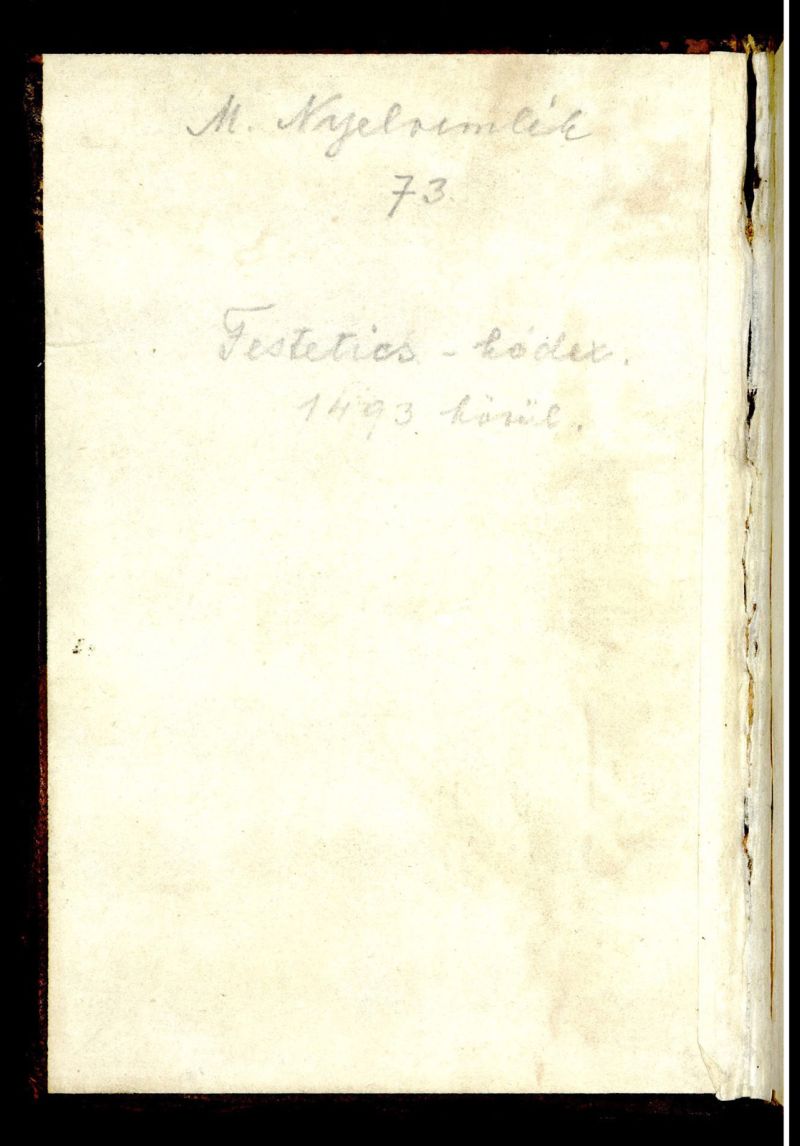 M. Nyelvemlék
73.
Festetics-kódex.
1493 körül.